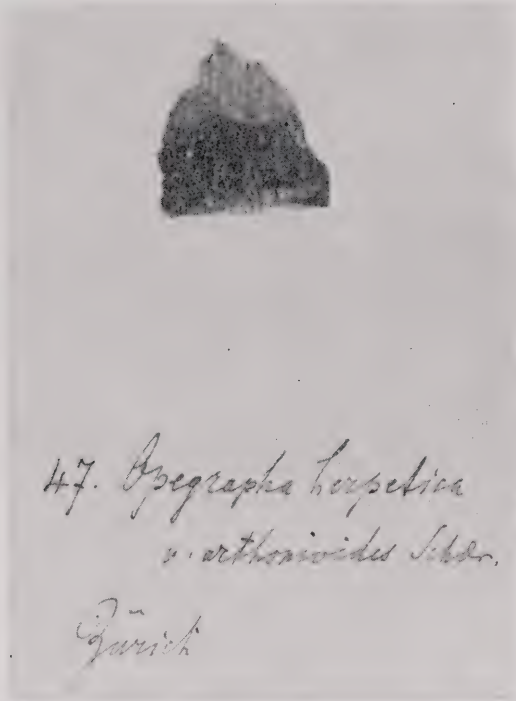 47. Opegrapha herpetica
v. arthonioides Schær.
Zürich